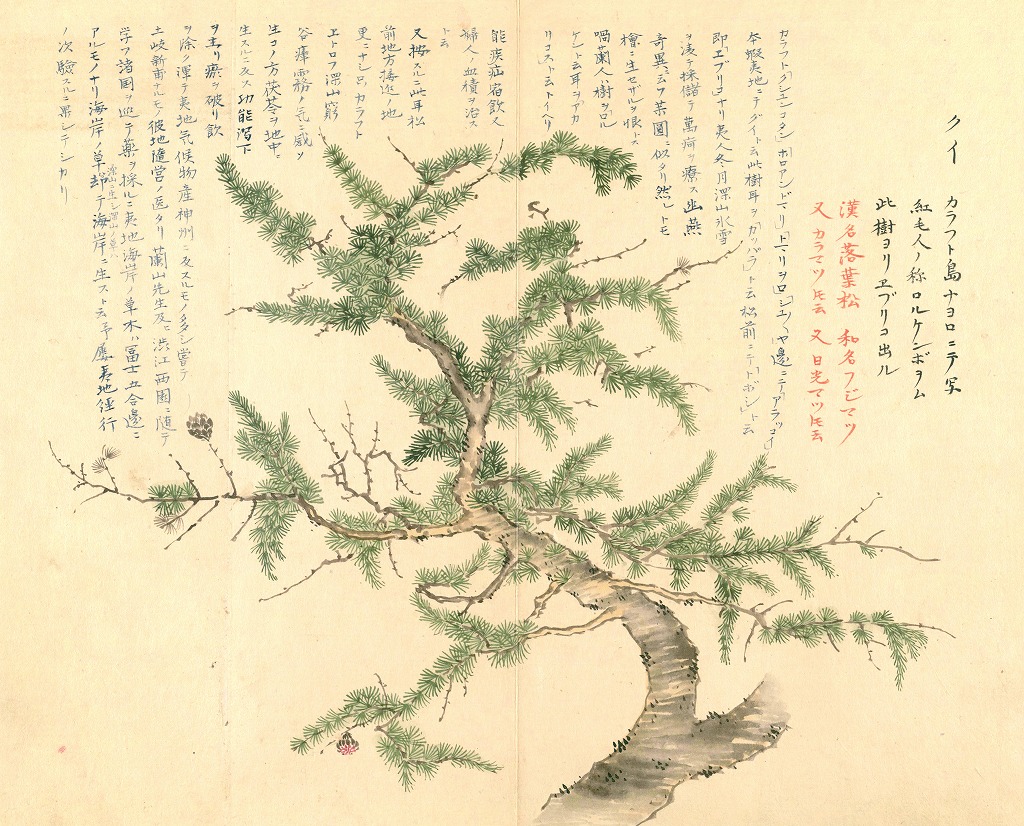 クイ
カラフト島ナヨロニテ写
紅毛人ノ称ロルケンボヲム
此樹ヨリエブリコ出ル
漢名落葉松 和名フジマツ
又カラマツ𪜈云 又日光マツ𪜈云
カラフト
本蝦夷地ニテグイト云此樹耳ヲ「カッパラ」ト云松前ニテ「トボシ」ト云
即「エブリコ」ナリ夷人冬月深山氷雪
ヲ 採 テ萬病ヲ療ス
奇異ニ 葉圓ニ似タリ然レトモ
檜ニ生セザルヲ恨トス
喎蘭人ハ樹ヲロル
ケント云耳ヲアカ
リコスト云トイヘリ
能疾疝宿飲又
婦人ノ血積ヲ治ス
ト云
又按スルニ此耳松
前地方接近ノ地
更ニナシ カラフト
エトロフ深山窮
谷瘴霧ノ気ニ感シ
生コノ方茯苓ヲ地中ニ
生スルニ反ス功能瀉下
ヲ主リ癪ヲ破リ飲
ヲ除ク渾テ夷地気候物産神州ニ反スルモノ多シ嘗テ
土岐新甫ナルモノ彼地隨営ノ医タリ蘭山先生及ヒ渋江西園ニ随テ
学フ諸国ヲ巡テ薬ヲ採ルニ夷地海岸ノ草木ハ冨士五合邊ニ
アルモノナリ海岸ノ草却テ海岸ニ生スト云予屡夷地経行
ノ次験スルニ果シテシカリ